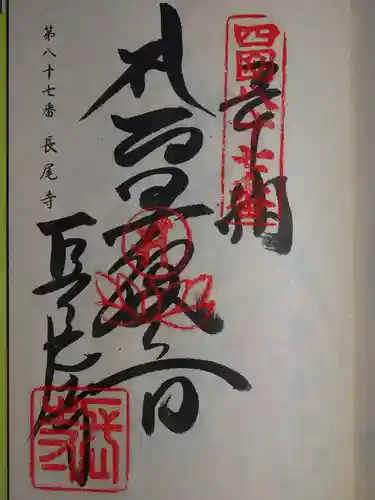 四国第八十七番
奉納
聖観音
長尾寺
第八十七番 長尾寺